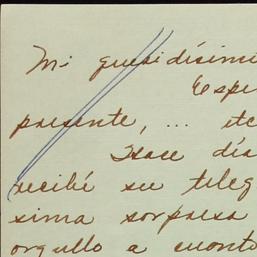 Mi queridísim
Espe
presente, ... etc
Hace día
recibí su teleg
sima sorpresa
orgullo a cuanto